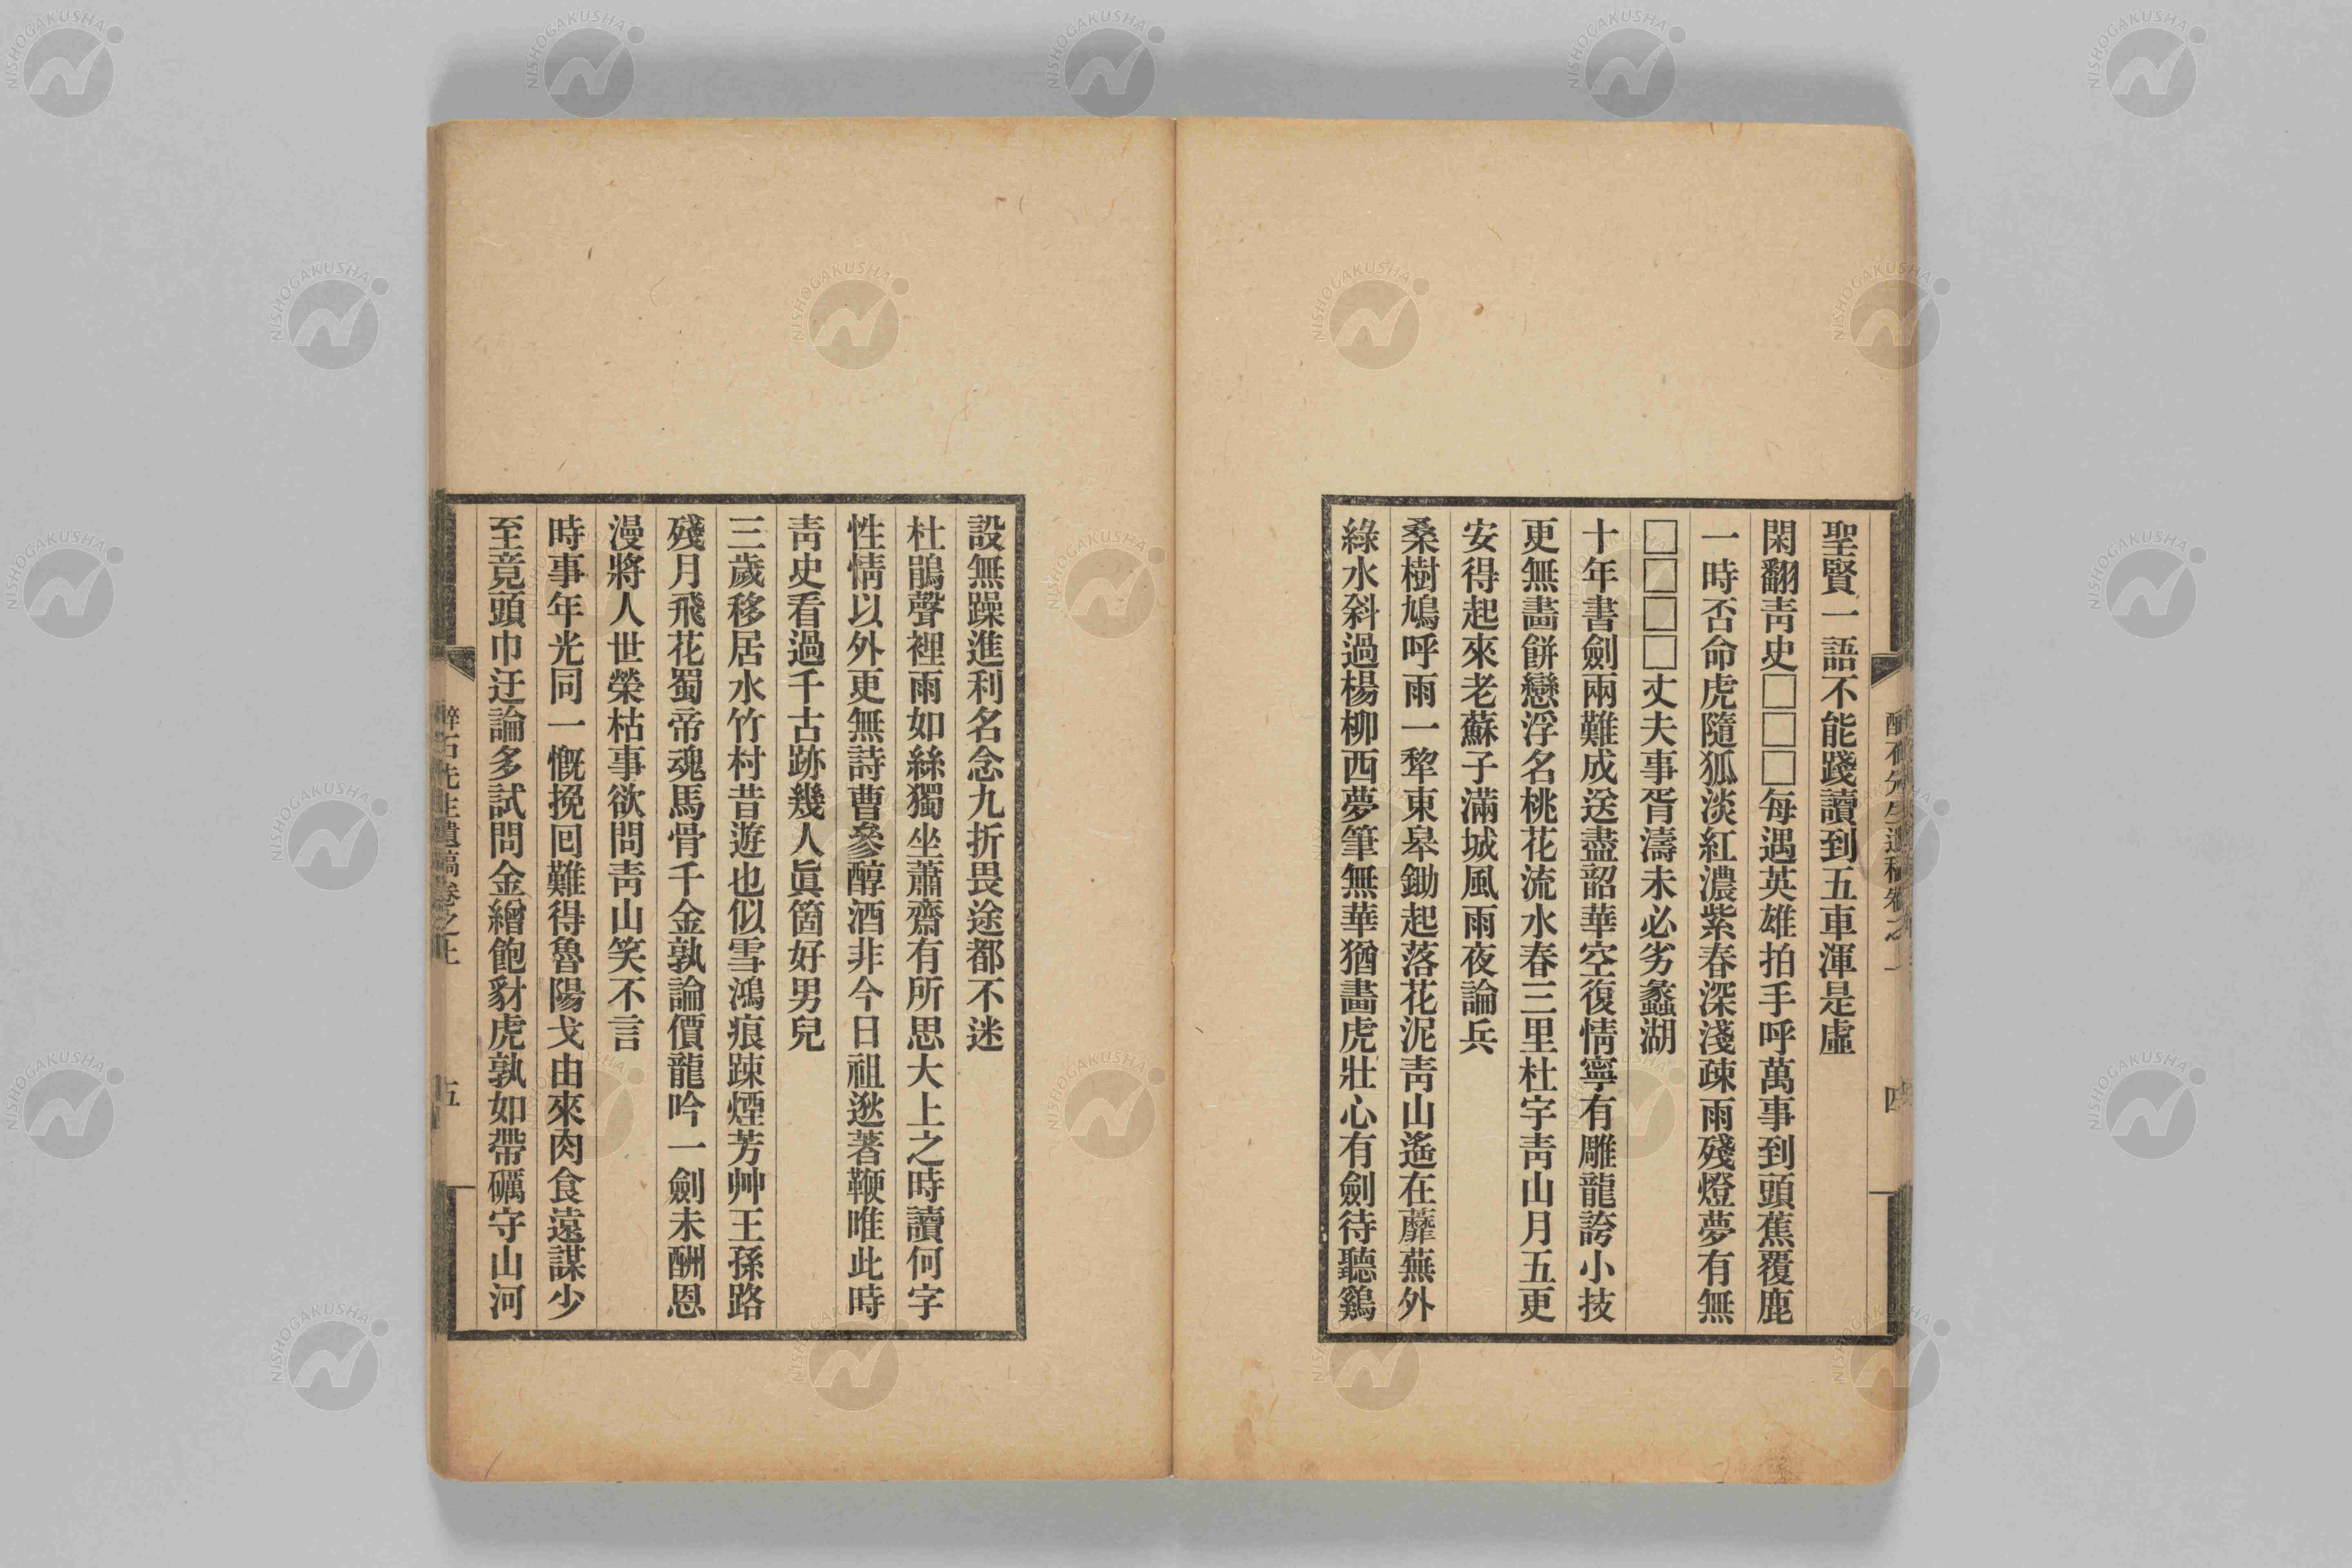 聖賢一語不能踐讀到五車渾是虛
閑翻靑史□□□每遇英雄拍手呼萬事到頭蕉覆鹿
一時否命虎隨狐淡紅濃紫春深淺疎雨殘燈夢有無
□□□□丈夫事胥濤未必劣蠡湖
十年書劍兩難成送盡韶華空復情寧有雕龍誇小技
更無畵餅戀浮名桃花流水春三里杜宇靑山月五更
安得起來老蘇子滿城風雨夜論兵
桑樹鳩呼雨一犂東皋鋤起落花泥靑山遙在蘼蕪外
綠水斜過楊柳西夢筆無華猶畵虎壯心有劍待聽鷄
設無躁進利名念九折畏途都不迷
杜鵑聲裡雨如絲獨坐蕭齋有所思大上之時讀何字
性情以外更無詩曹參醇酒非今日祖逖著鞭唯此時
靑史看過千古跡幾人眞箇好男兒
三歲移居水竹村昔遊也似雪鴻痕踈煙芳艸王孫路
殘月飛花蜀帝魂馬骨千金孰論價龍吟一劍未酬恩
漫將人世榮枯事欲問靑山笑不言
時事年光同一慨挽回難得魯陽戈由來肉食遠謀少
至竟頭巾迂論多試問金繒飽豺虎孰如帶礪守山河
醉石先生遺稿卷之上
五
NISHOGAKUSHA